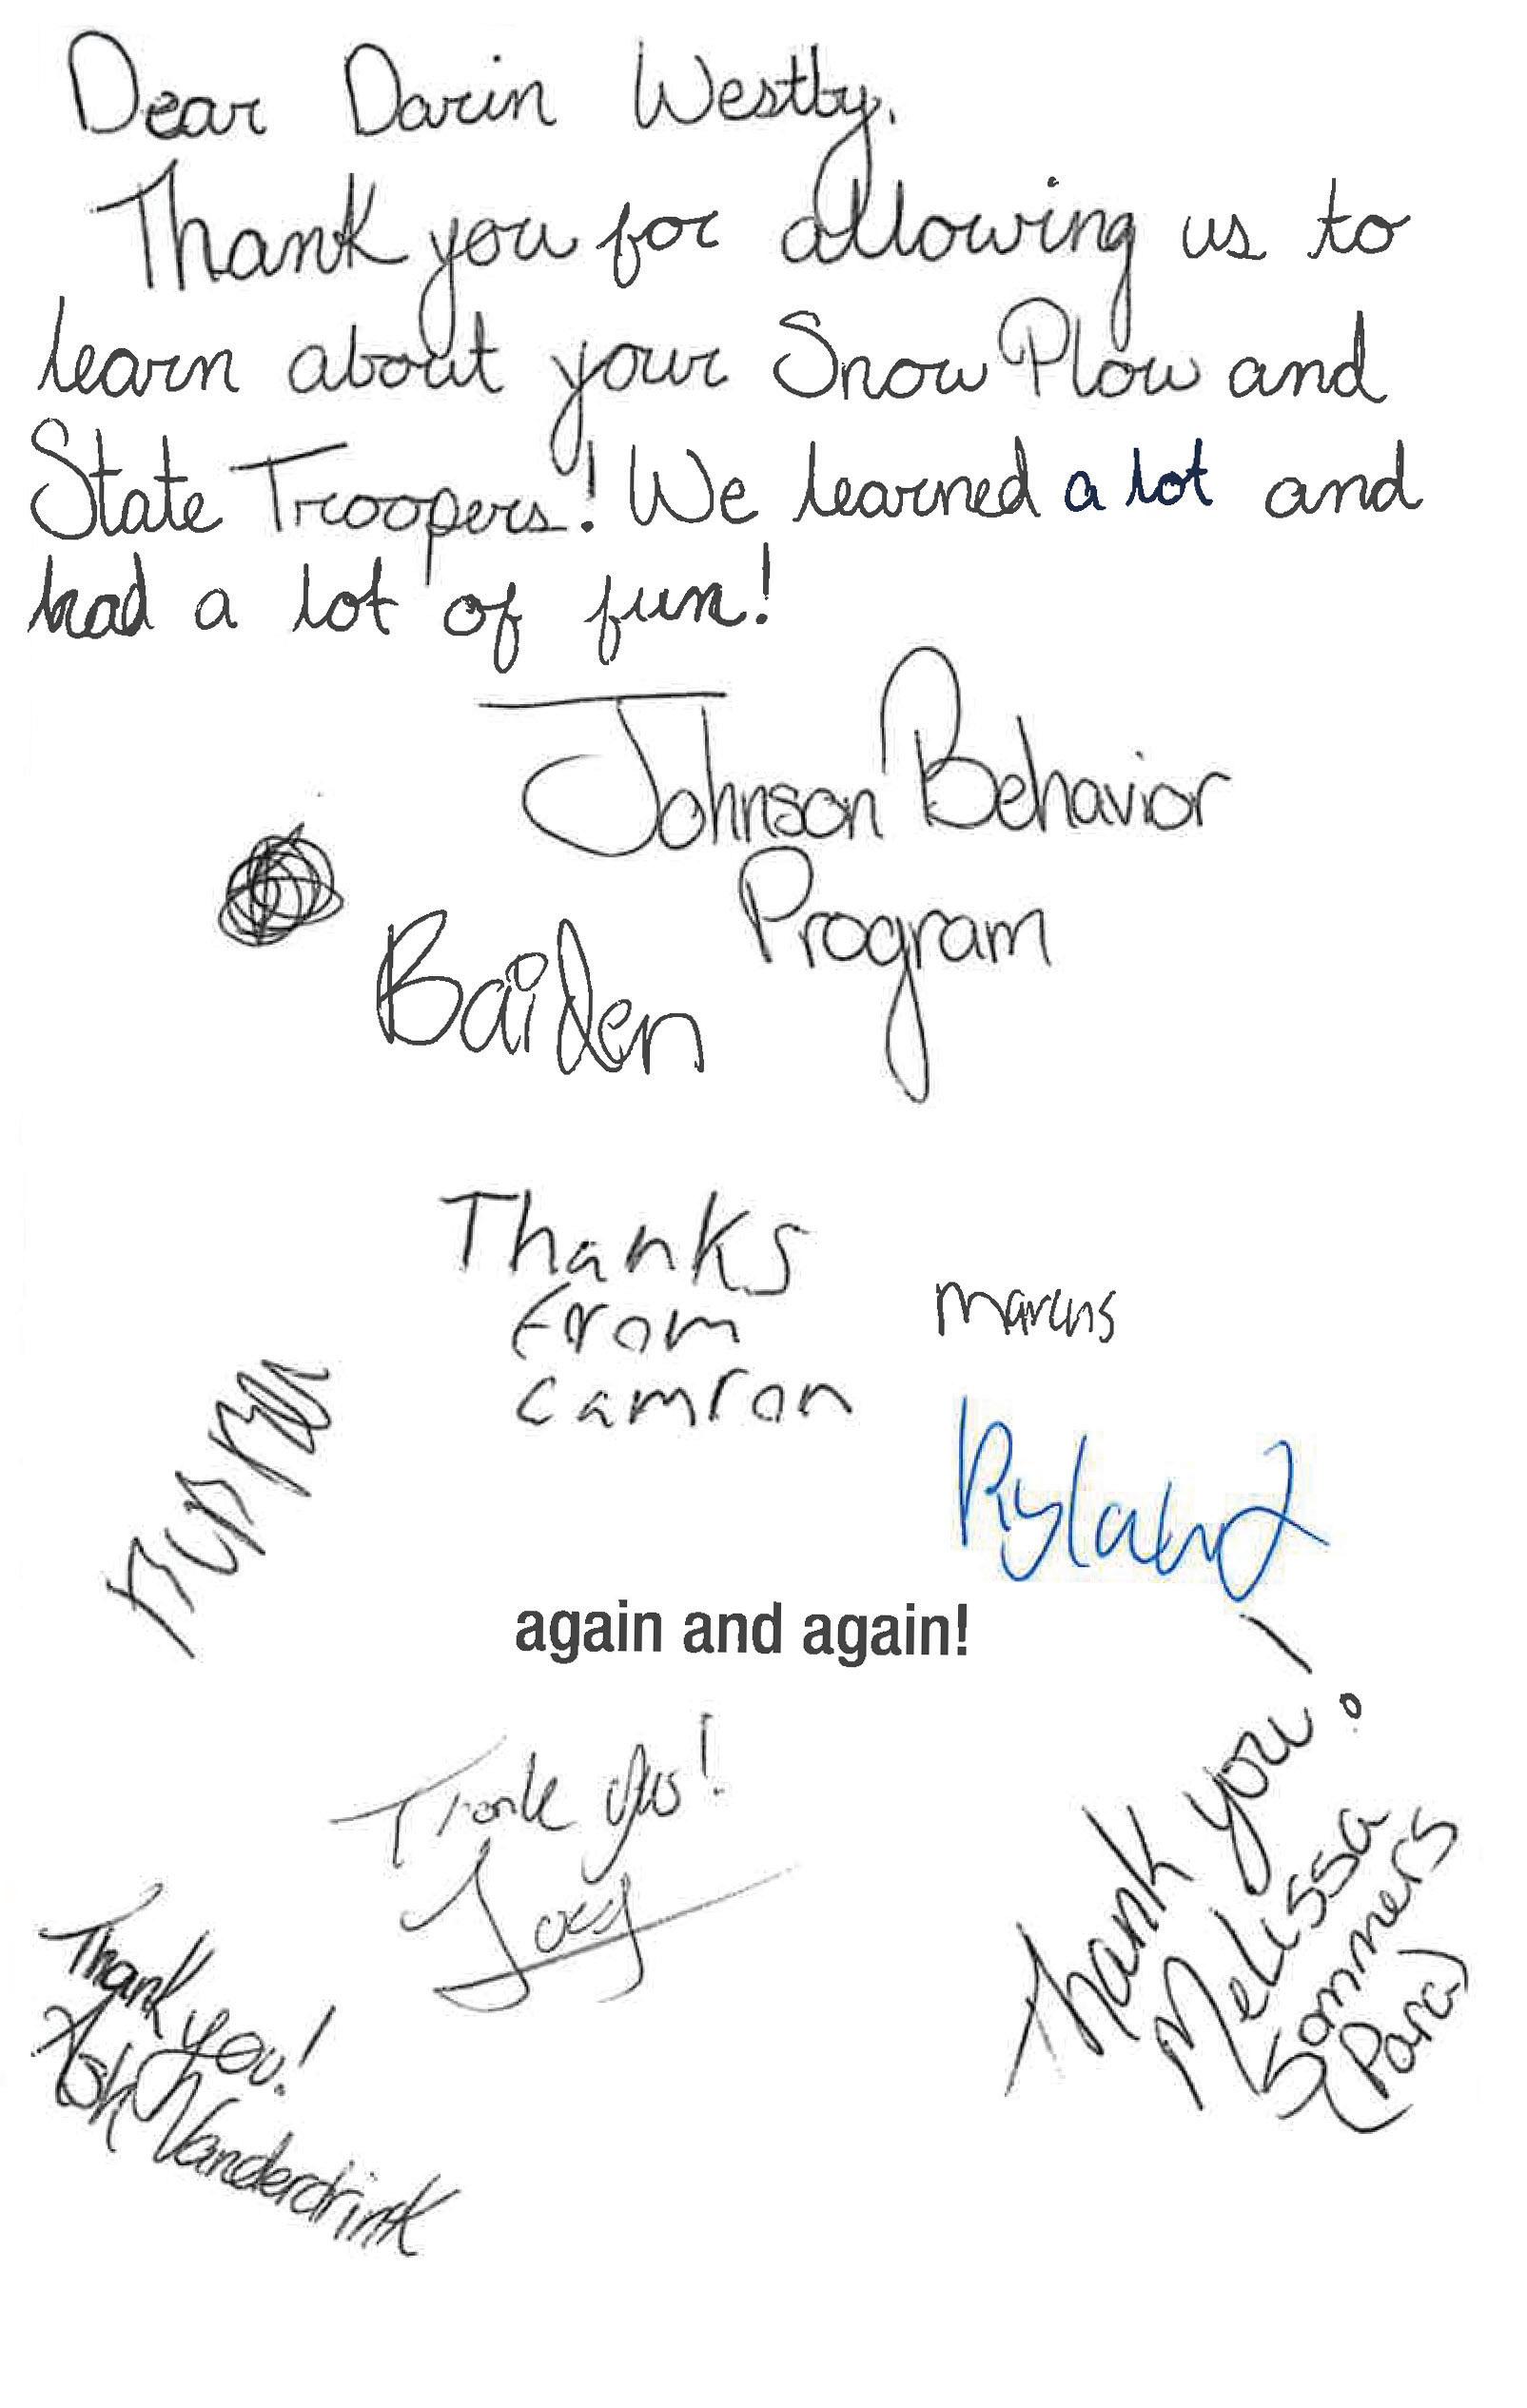 Dear Darin Westby,
Thank you for allowing us to
learn about your Snow Plow and
State Troopers! We learned a lot and
had a lot of fun!
Johnson Behavior
Program
Baiden
Thanks
From
camron
Marcus
Ryland
again and again!
Thank you!
Joey
Thank you!
Melissa
Sommers
(Para)
Thank you!
Ash Vanderdrink